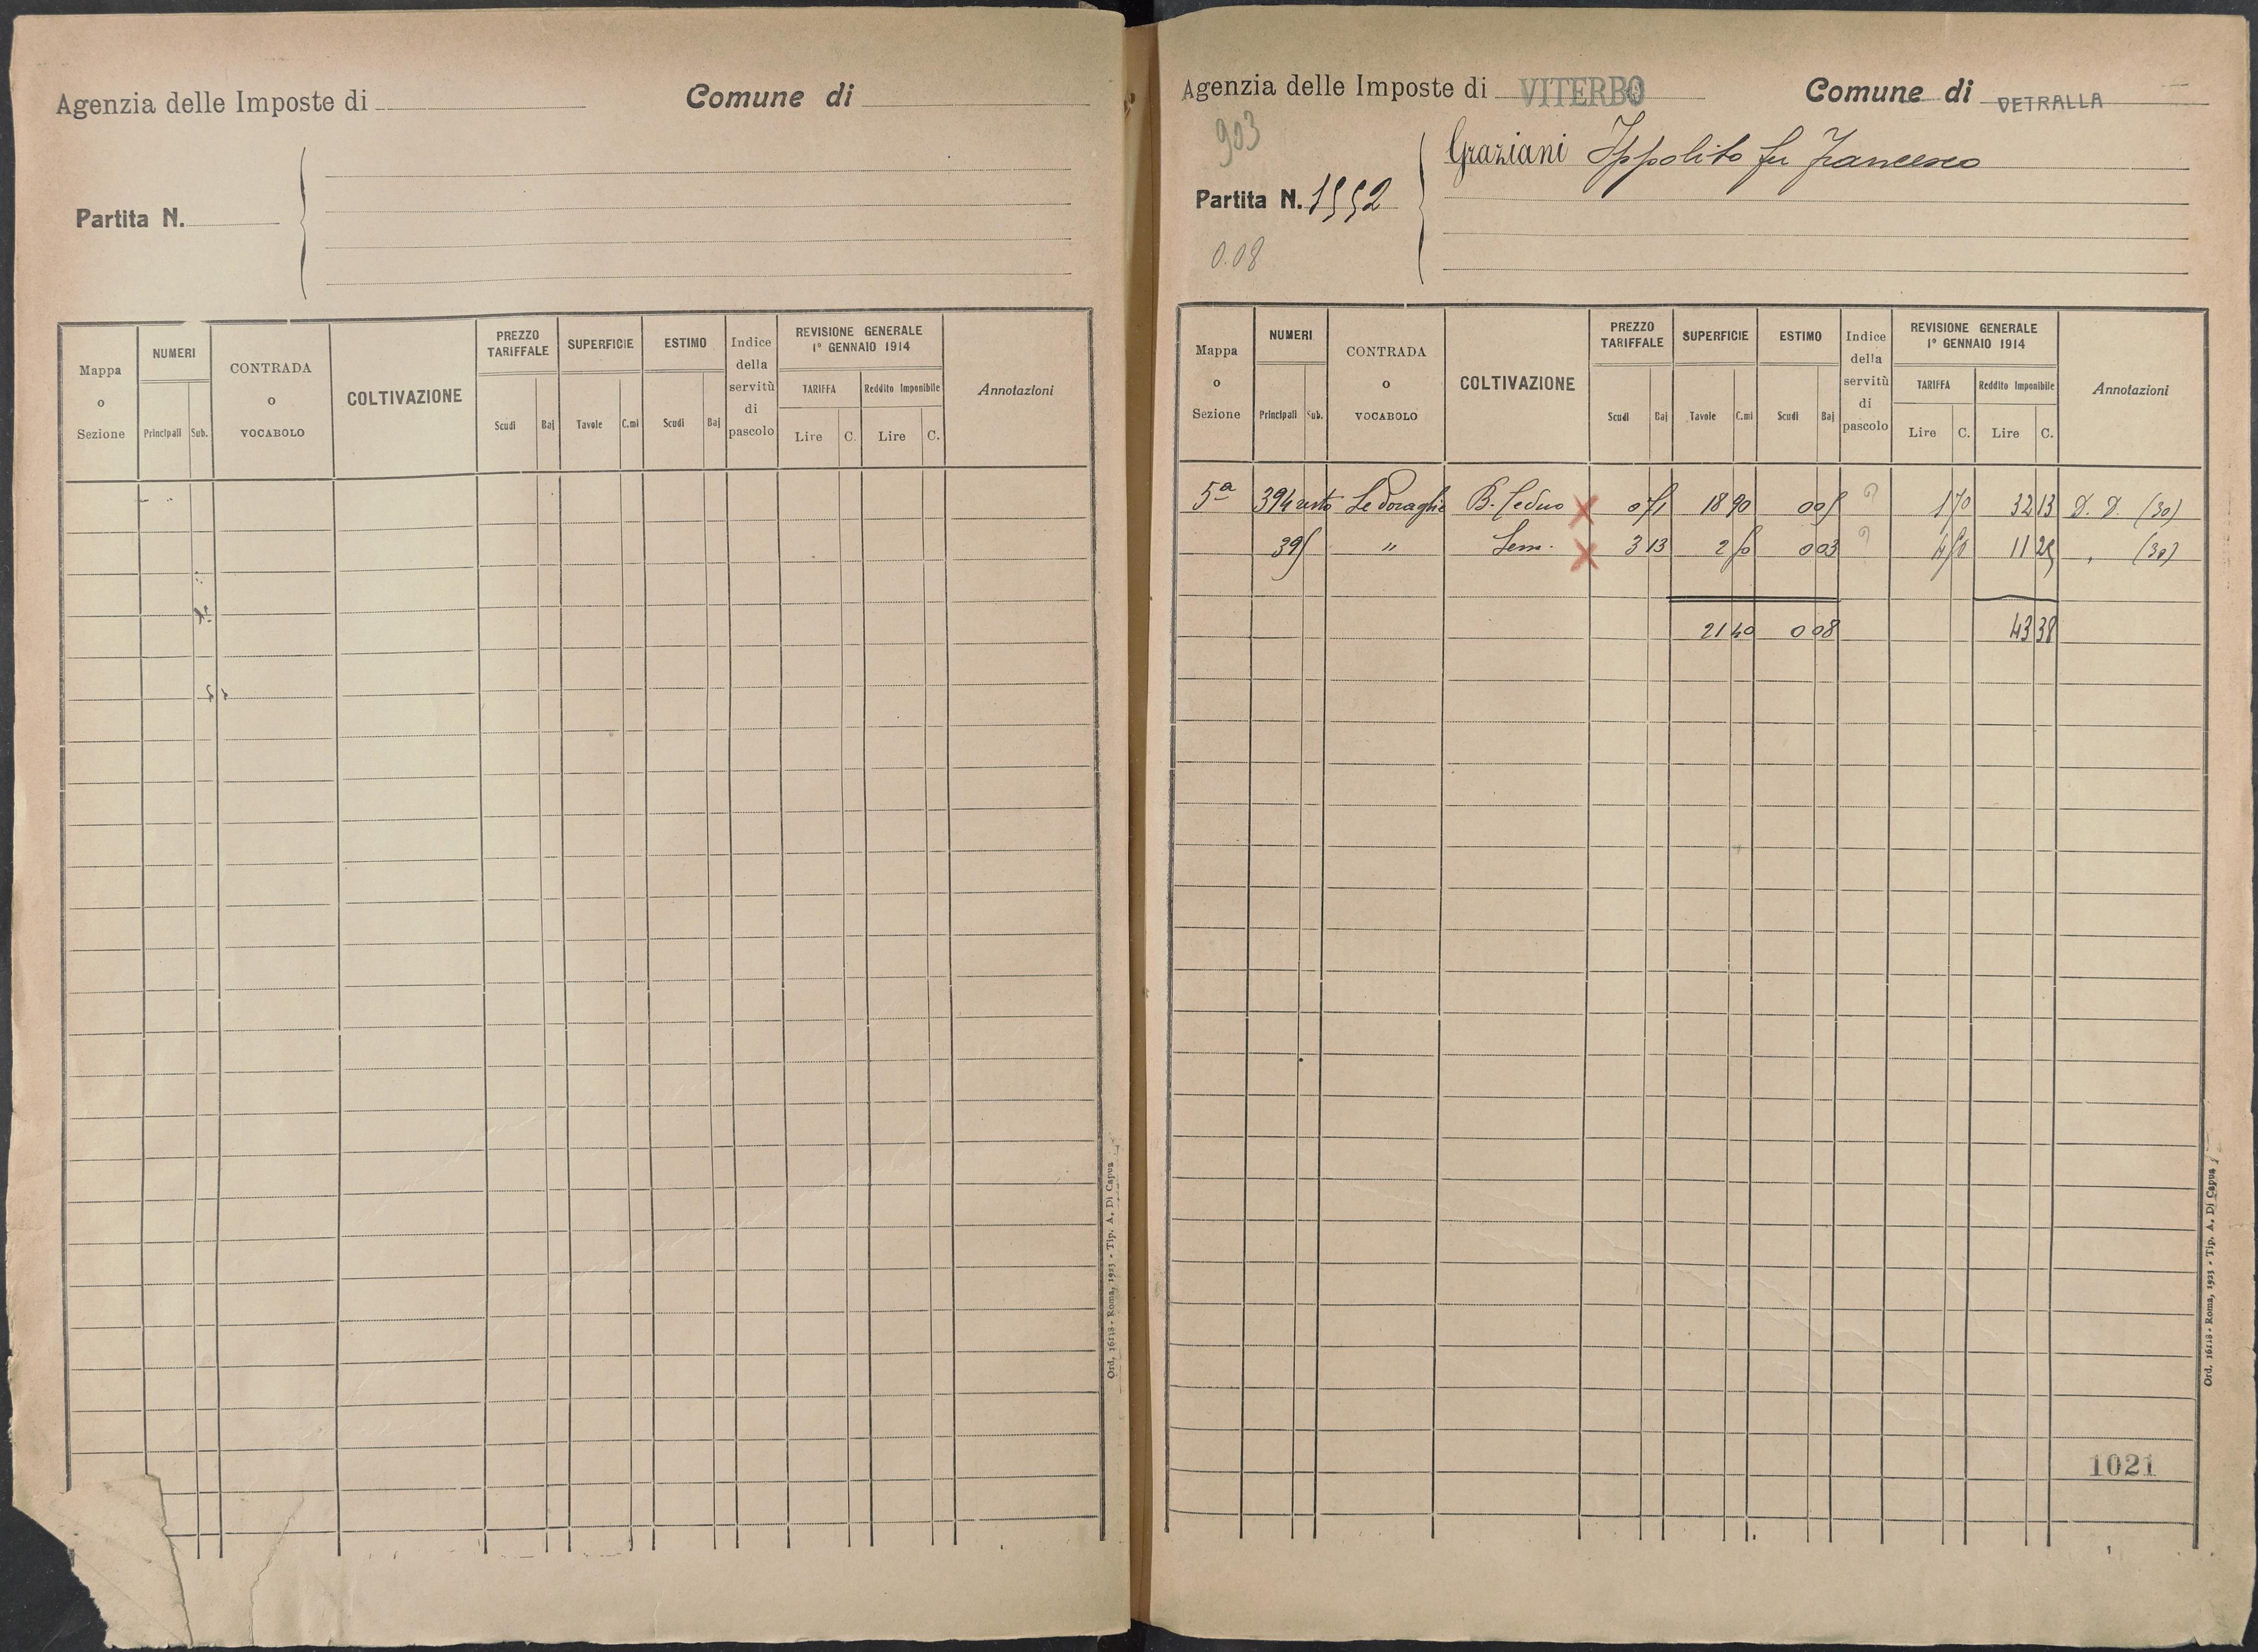 Agenzia delle Imposte di
Comune di
Partita N.
Mappa o Sezione
NUMERI
Principali
Sub.
CONTRADA o VOCABOLO
COLTIVAZIONE
PREZZO TARIFFALE
Scudi
Baj
SUPERFICIE
Tavole
C.mi
ESTIMO
Scudi
Baj
Indice della servitù di pascolo
REVISIONE GENERALE
1° GENNAIO 1914
TARIFFA
Reddito Imponibile
Lire
C.
Lire
C.
Annotazioni
Ord. 16118 - Roma, 1923 - Tip. A. Di Capua
Agenzia delle Imposte di VITERBO
Comune di VETRALLA
903
Graziani Ippolito fu Francesco
Partita N. 1552
0.08
Mappa o Sezione
NUMERI
Principali
Sub.
CONTRADA o VOCABOLO
COLTIVAZIONE
PREZZO TARIFFALE
Scudi
Baj
SUPERFICIE
Tavole
C.mi
ESTIMO
Scudi
Baj
Indice della servitù di pascolo
REVISIONE GENERALE
1° GENNAIO 1914
TARIFFA
Reddito Imponibile
Lire
C.
Lire
C.
Annotazioni
5ª 394 resto B. Ceduo X 18 90 0 05 1 70 32 13 D. D. (30)
395 " Sem. X 3 13 2 50 0 03 4 50 11 25 , (30)
21 40 0 08 43 38
1021
Ord. 16118 - Roma, 1923 - Tip. A. Di Capua